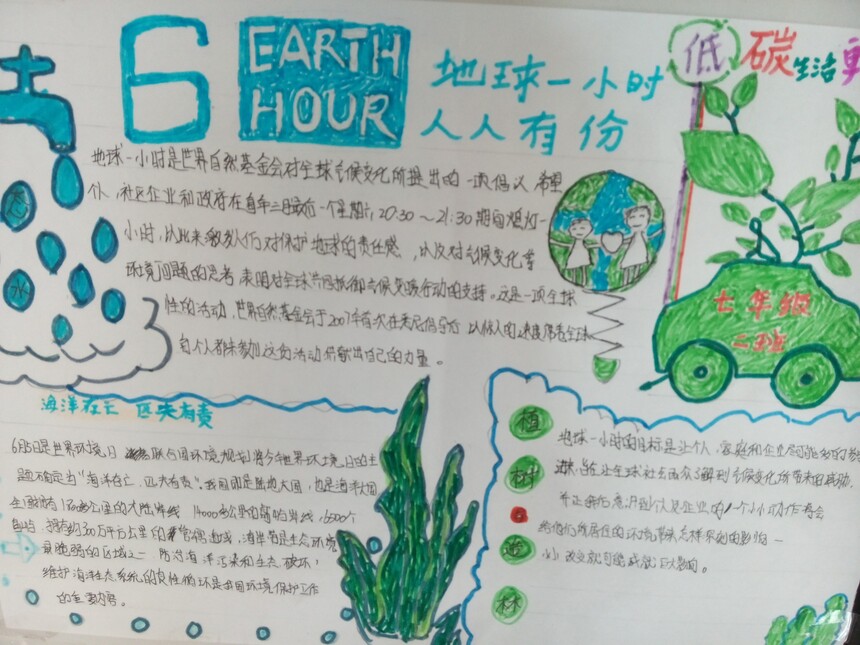 6
EARTH
HOUR
地球一小时
人人有份
低碳生活
七年级
二班
水
地球一小时是世界自然基金会对全球气候变化所提出的一项倡议,希望
个人、社区企业和政府在每年三月最后一个星期六20:30~21:30期间熄灯一
小时,以此来激发人们对保护地球的责任感,以及对气候变化等
环境问题的思考,表明对全球共同抵御气候变暖行动的支持。这是一项全球
性的活动,世界自然基金会于2007年首次在悉尼倡导后,以惊人的速度席卷全球
每个人都来参加这
活动
献出自己的力量。
海洋存亡 匹夫有责
6月5日是世界环境日
联合国环境规划
今年世界环境日的主
题确定为“海洋存亡,匹夫有责”。我国即是陆地大国,也是海洋大国
拥有
公里的大陆岸线
14000多公里的岛屿岸线,6500个
岛屿
拥有约300万平方公里的
海域,海岸带是生态环境
最脆弱的区域之一
防治海洋污染和生态破坏,
维护海洋生态系统的良性循环是我国环境保护工作
的重要内容。
植
树
造
林
地球一小时的目标是让个人、家庭和企业
让全球社会
了解到气候变化所带来的威胁,
并
意识到个人及企业的一个小小动作将会
给他们所居住的环境带来怎样深刻的影响一
小小改变就可能
影响。